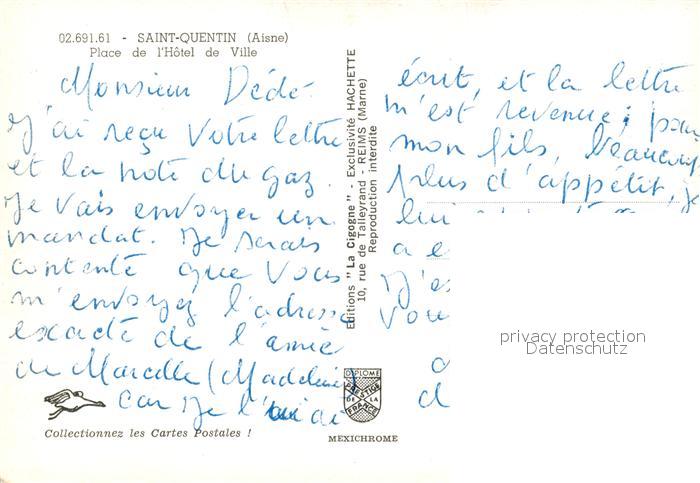 02.691.61 - SAINT-QUENTIN (Aisne)
Place de l'Hôtel de Ville
Monsieur Dédé.
J'ai reçu Votre lettre
et la note du gaz.
Je vais envoyer un
mandat. Je serais
contente que Vous
m'envoyez l'adresse
exacte de l'amie
de Marcelle (Madeleine)
car je l'ai
Collectionnez les Cartes Postales !
Editions "La Cigogne" - Exclusivité HACHETTE
10, rue de Talleyrand - REIMS (Marne)
Reproduction interdite
DIPLOME
PRESTIGE
DE LA
FRANCE
MEXICHROME
écrit, et la lettre
m'est revenue; pour
mon fils, beaucoup
plus d'appétit, je
lui
a e
J'es
Vou
d
privacy protection
Datenschutz